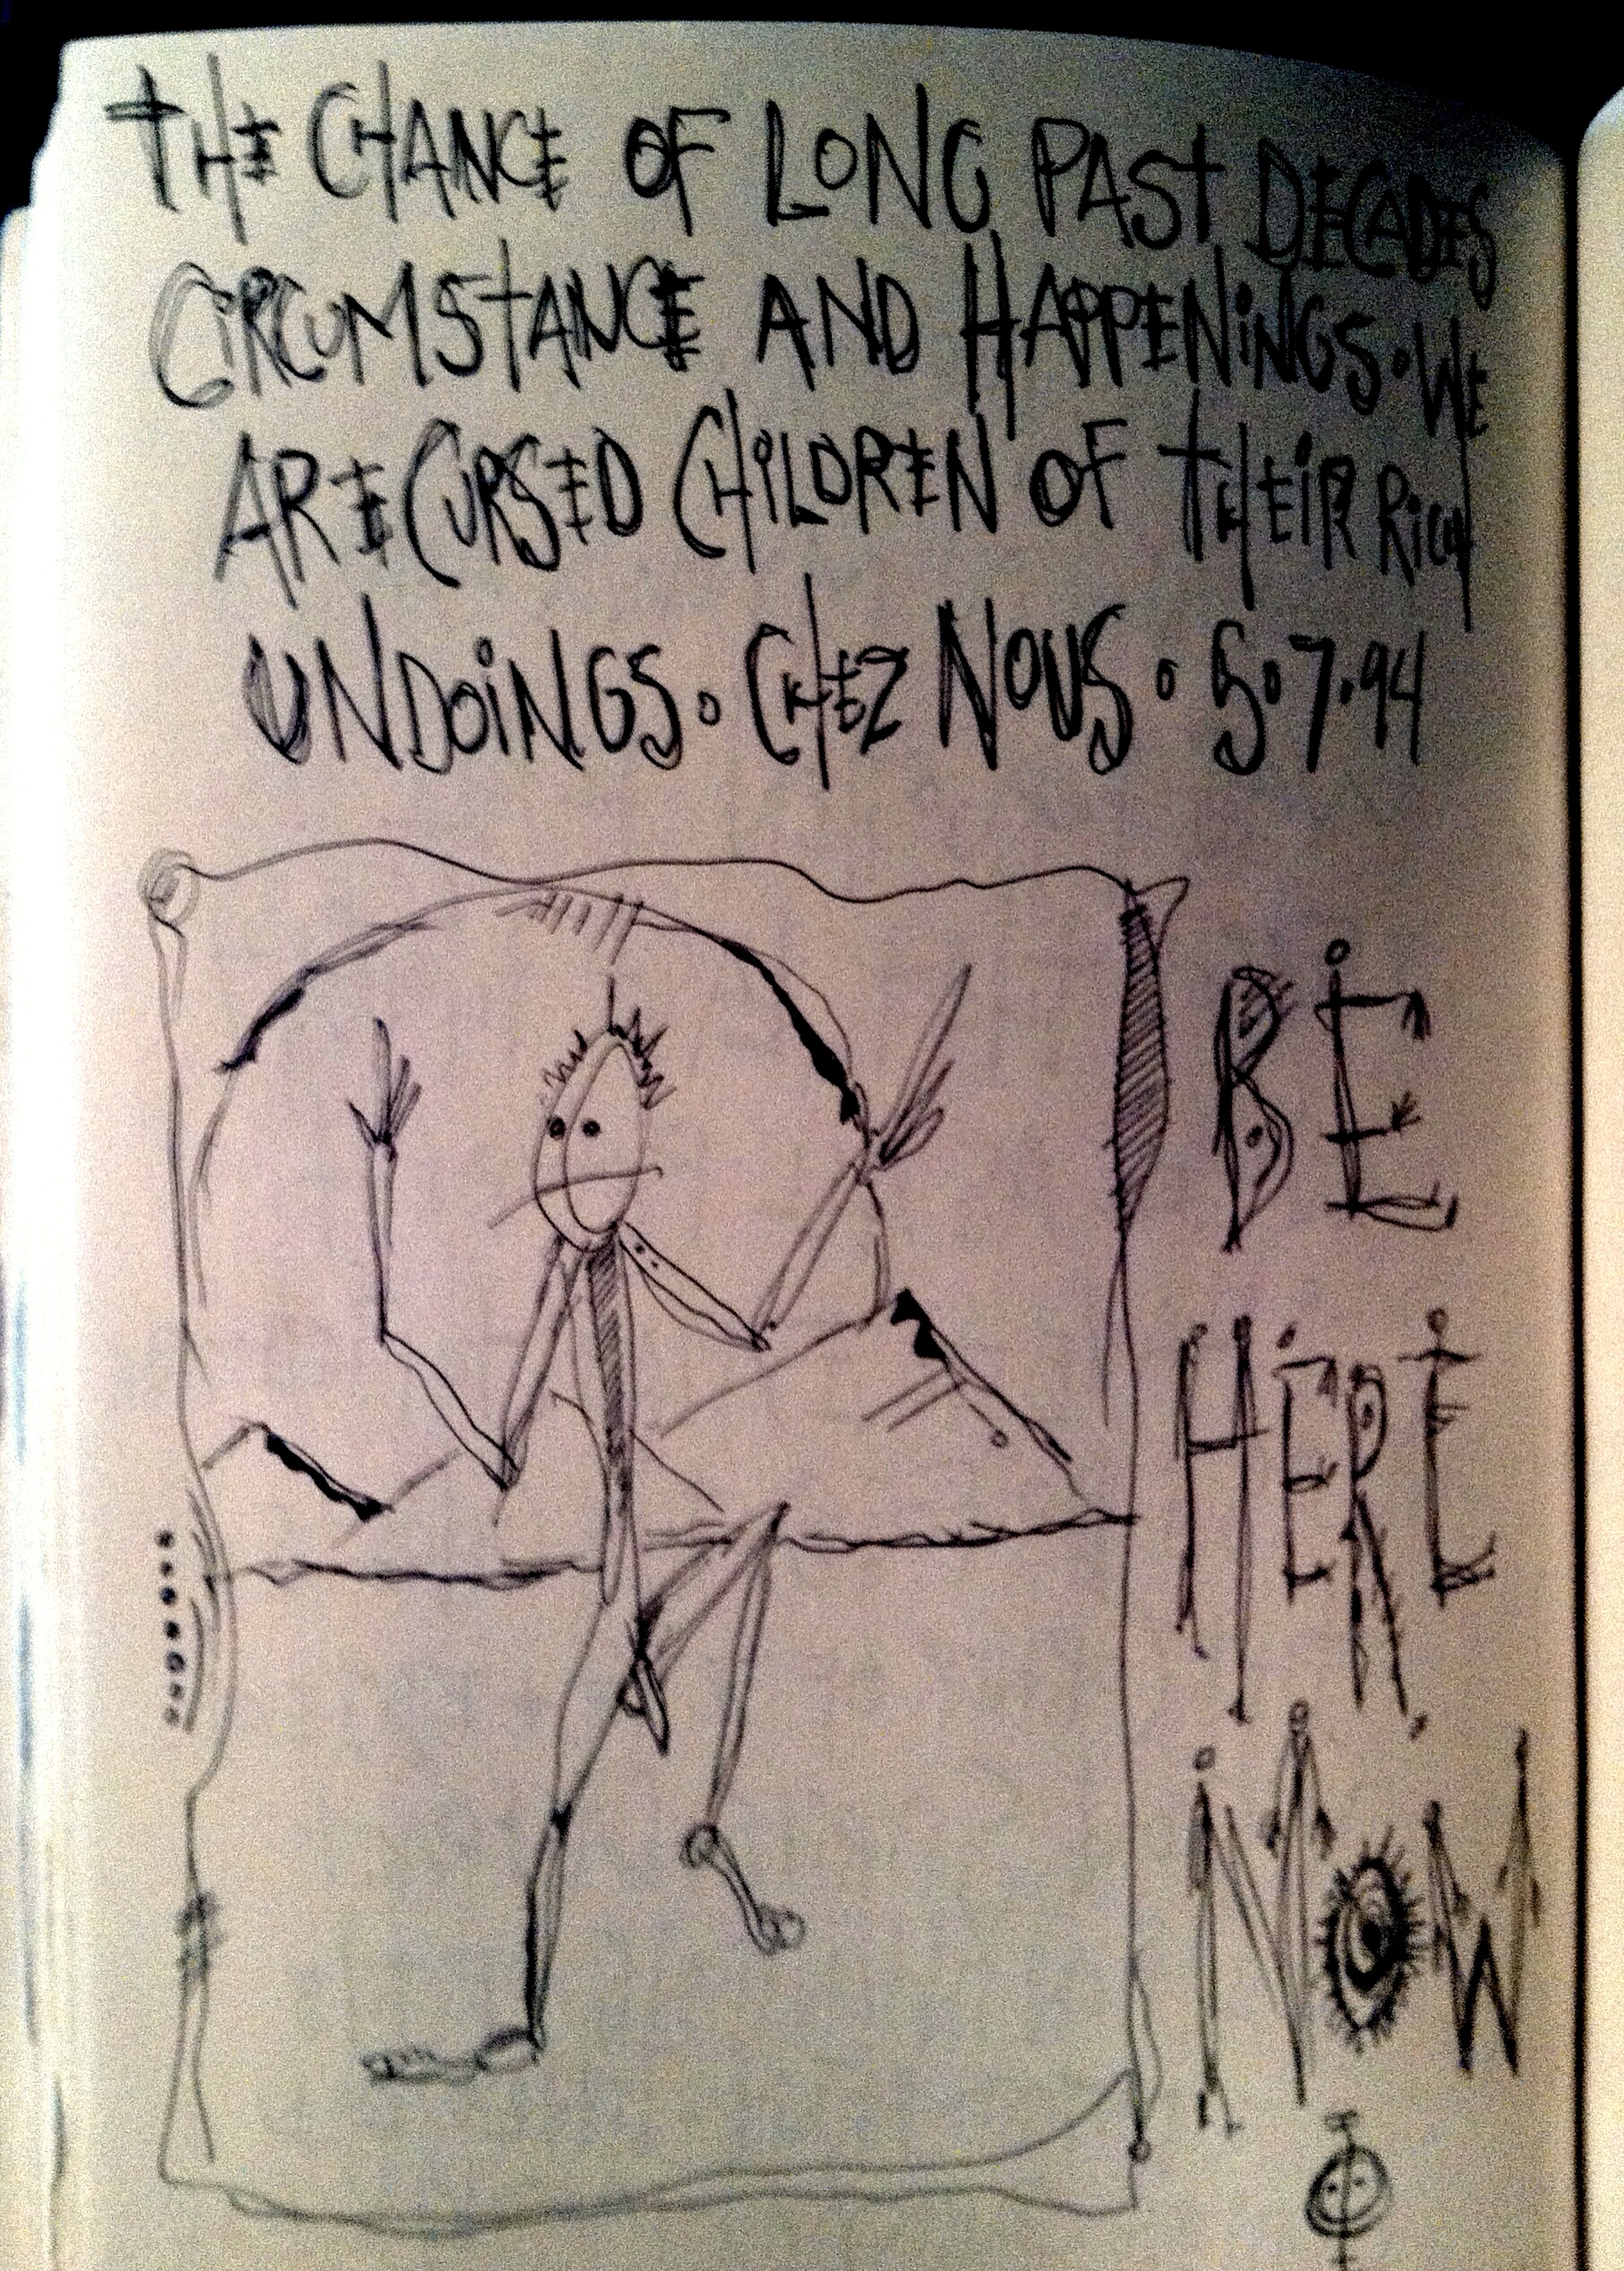 THE CHANCE OF LONG PAST DECADES
CiRCUMSTANCE AND HAPPENiNGS. WE
ARE CURSED CHiLDREN OF THEiR RiCH
UNDOiNGS. CHEZ NOUS. 5.7.94
BE
HERE
NOW